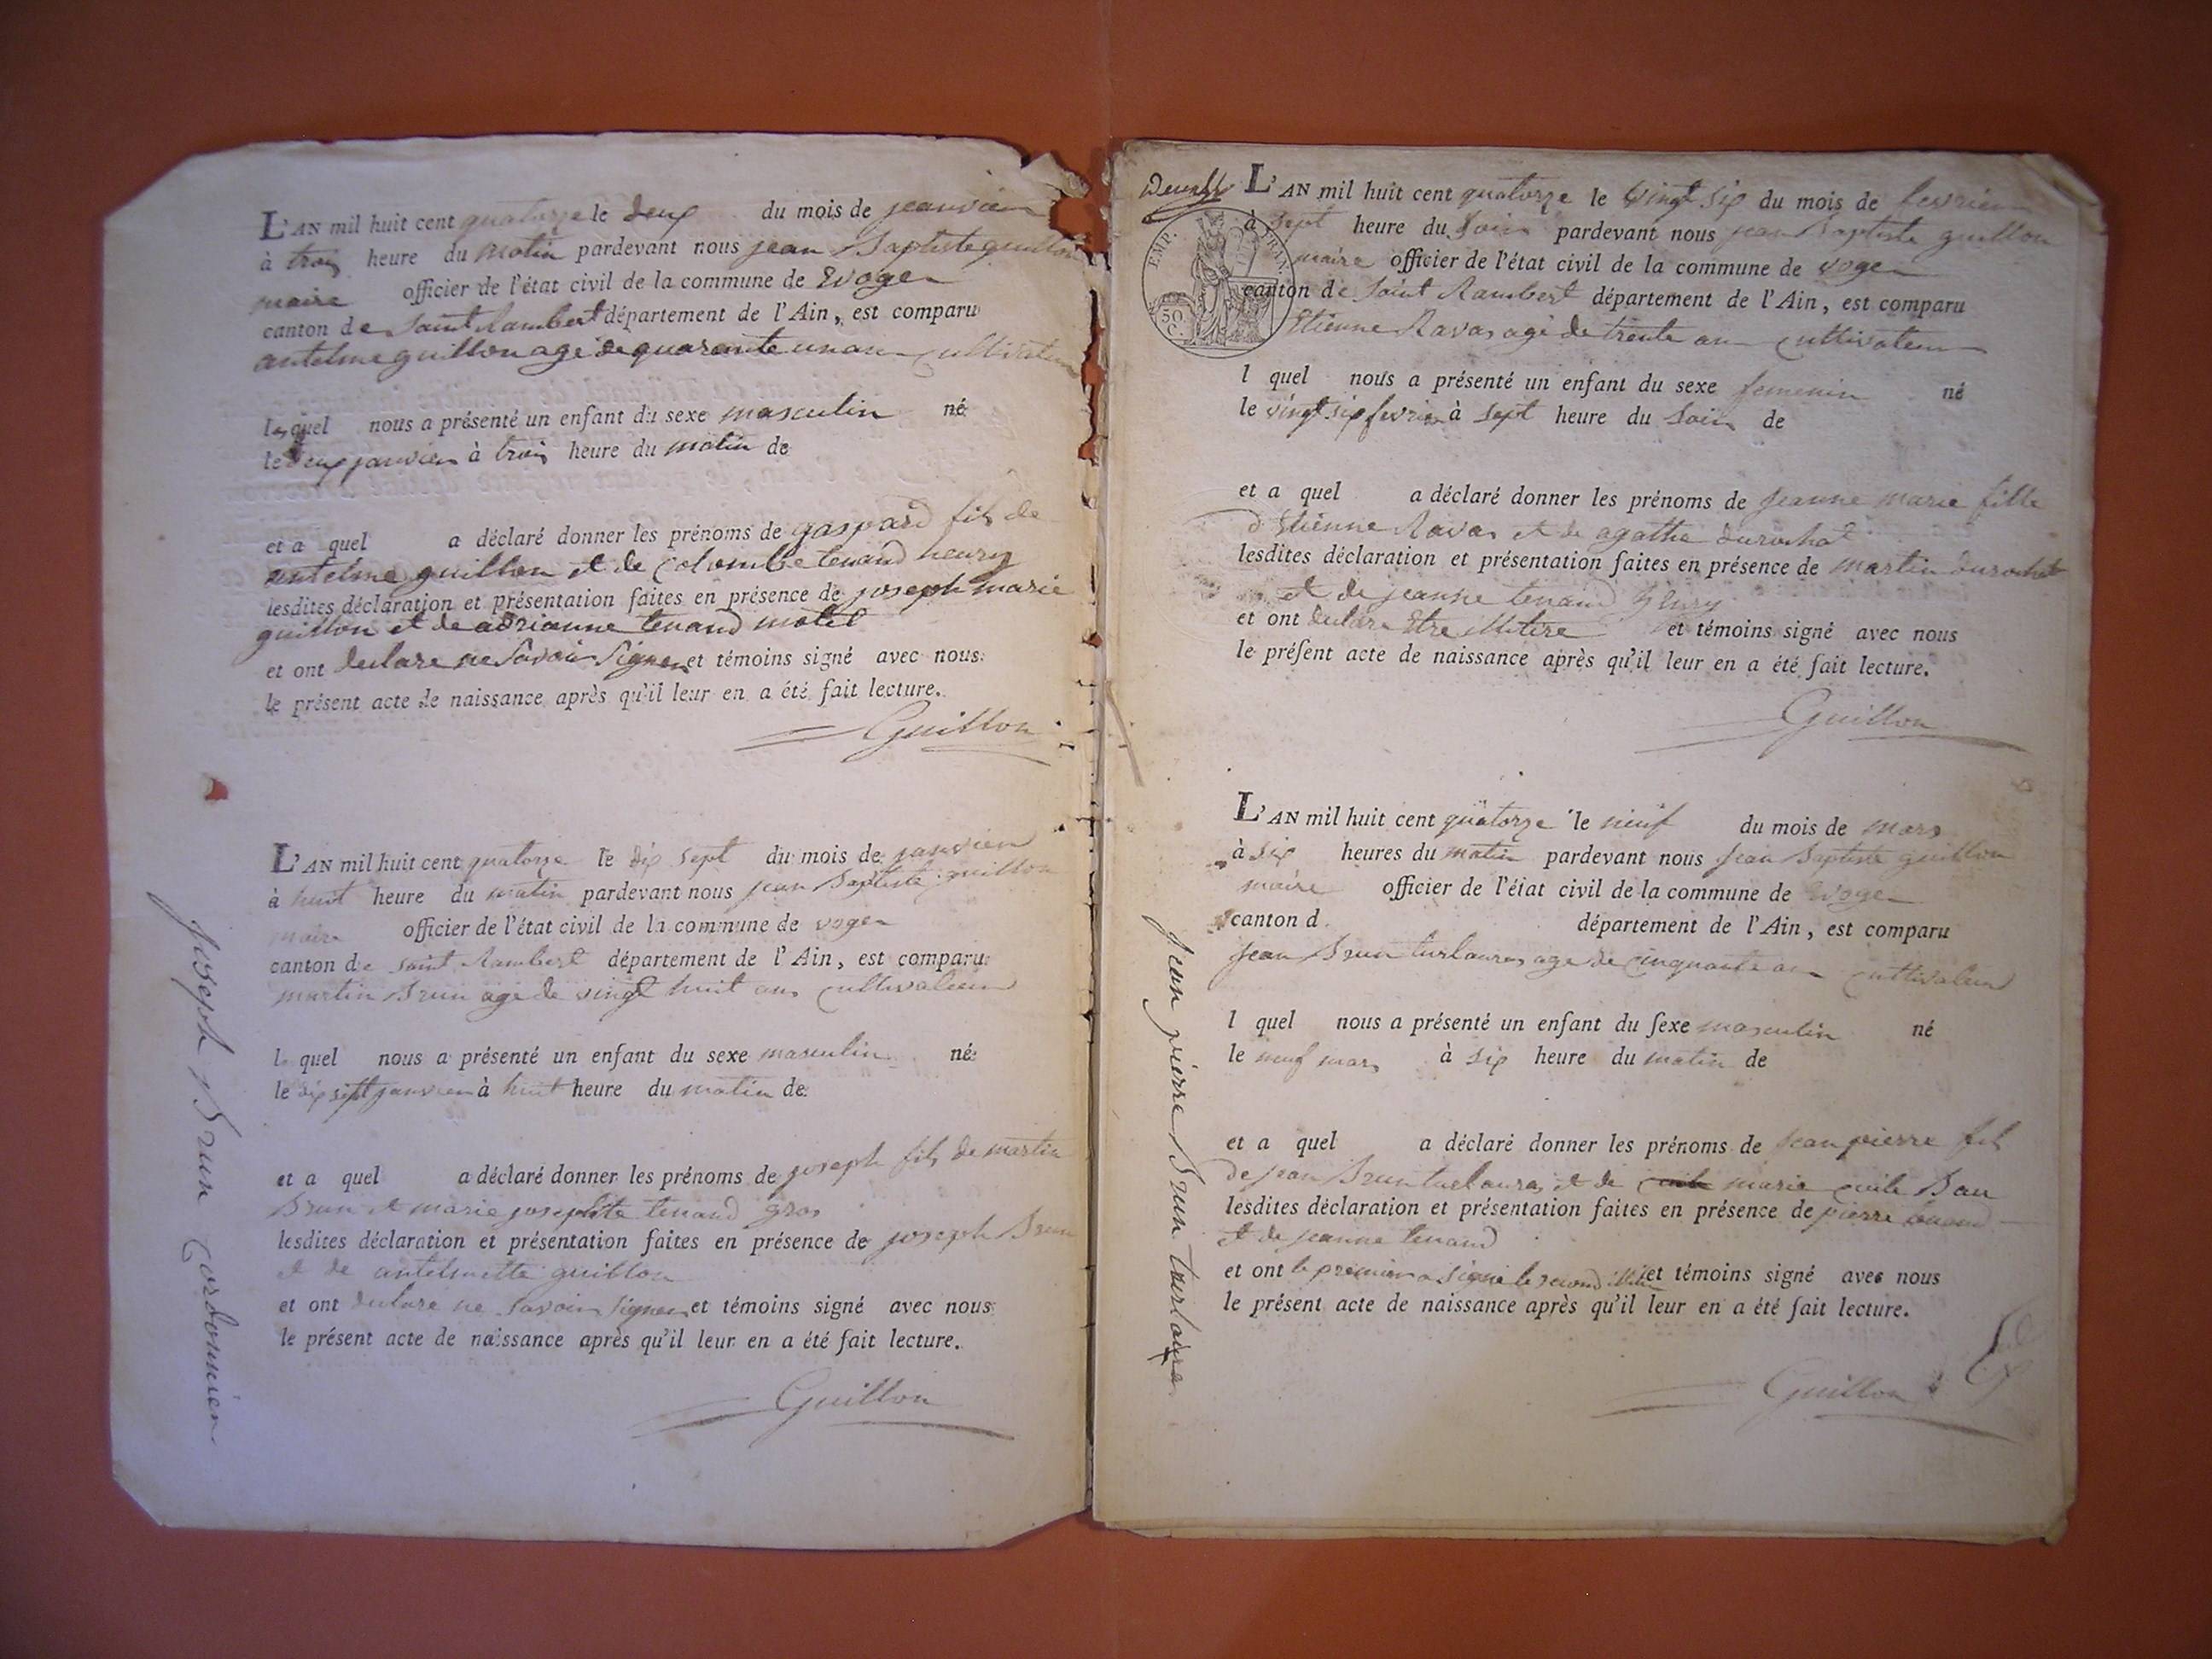 L'AN mil huit cent quatorze le deux du mois de jeanvier
à trois heure du matin pardevant nous jean Baptiste guillon
maire officier de l'état civil de la commune de Evoge
canton de saint Rambert département de l'Ain, est comparu
antelme guillon agé de quarante un an cultivateur
lequel nous a présenté un enfant du sexe masculin né
le deux janvier à trois heure du matin de
et a quel a déclaré donner les prénoms de gaspard fils de
antelme guillon et de Colombe tenand henry
lesdites déclaration et présentation faites en présence de joseph marie
guillon et de adrianne tenand motel
et ont declare ne savoir signer et témoins signé avec nous
le présent acte de naissance après qu'il leur en a été fait lecture.
Guillon
L'AN mil huit cent quatorze le dix sept du mois de janvier
à huit heure du matin pardevant nous jean Baptiste guillon
maire officier de l'état civil de la commune de voge
canton de saint Rambert département de l'Ain, est comparu
martin Brun agé de vingt huit ans cultivateur
le quel nous a présenté un enfant du sexe masculin né
le dix sept janvier à huit heure du matin de
et a quel a déclaré donner les prénoms de joseph fils de martin
Brun et marie josephte tenand gros
lesdites déclaration et présentation faites en présence de joseph Brun
et de antelmette guillon
et ont declare ne savoir signer et témoins signé avec nous
le présent acte de naissance après qu'il leur en a été fait lecture.
Guillon
Joseph Brun Cordonnier
L'AN mil huit cent quatorze le vingt six du mois de fevrier
à sept heure du soir pardevant nous jean Baptiste guillon
maire officier de l'état civil de la commune de voge
canton de Saint Rambert département de l'Ain, est comparu
Etienne Ravas agé de trente an cultivateur
EMP. FRAN.
50 C.
l quel nous a présenté un enfant du sexe femenin né
le vingt six fevrier à sept heure du soir de
et a quel a déclaré donner les prénoms de jeanne marie fille
d'Etienne Ravas et de agathe durochat
lesdites déclaration et présentation faites en présence de martin durochat
et de jeanne tenand henry
et ont declare Etre illitere et témoins signé avec nous
le préſent acte de naissance après qu'il leur en a été fait lecture.
Guillon
L'AN mil huit cent quatorze le neuf du mois de mars
à six heures du matin pardevant nous jean Baptiste guillon
maire officier de l'état civil de la commune de Evoge
canton d département de l'Ain, est comparu
jean Brun turlauras age de cinquante an cultivateur
l quel nous a présenté un enfant du ſexe masculin né
le neuf mars à six heure du matin de
et a quel a déclaré donner les prénoms de jean pierre fils
de jean Brun turlauras et de marie
lesdites déclaration et présentation faites en présence de pierre tenand
et de jeanne tenand
et ont le premier a signé le second et témoins signé avec nous
le présent acte de naissance après qu'il leur en a été fait lecture.
Guillon
jean pierre Brun